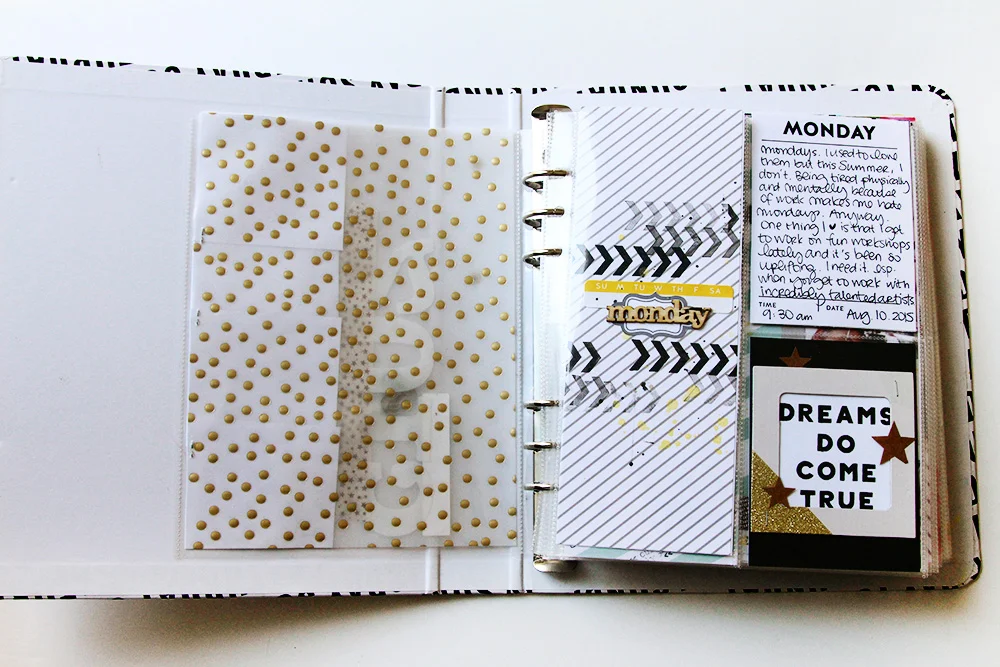 SU M TU W TH F SA
monday
MONDAY
mondays. I used to love
them but this Summer, I
don't. Being tired physically
and mentally because
of work makes me hate
mondays. Anyway.
One thing I ♥ is that I get
to work on fun workshops
lately and it's been so
uplifting. I need it. esp.
when I get to work with
incredibly talented artists
TIME
9:30 am
DATE
Aug 10. 2015
DREAMS
DO
COME
TRUE